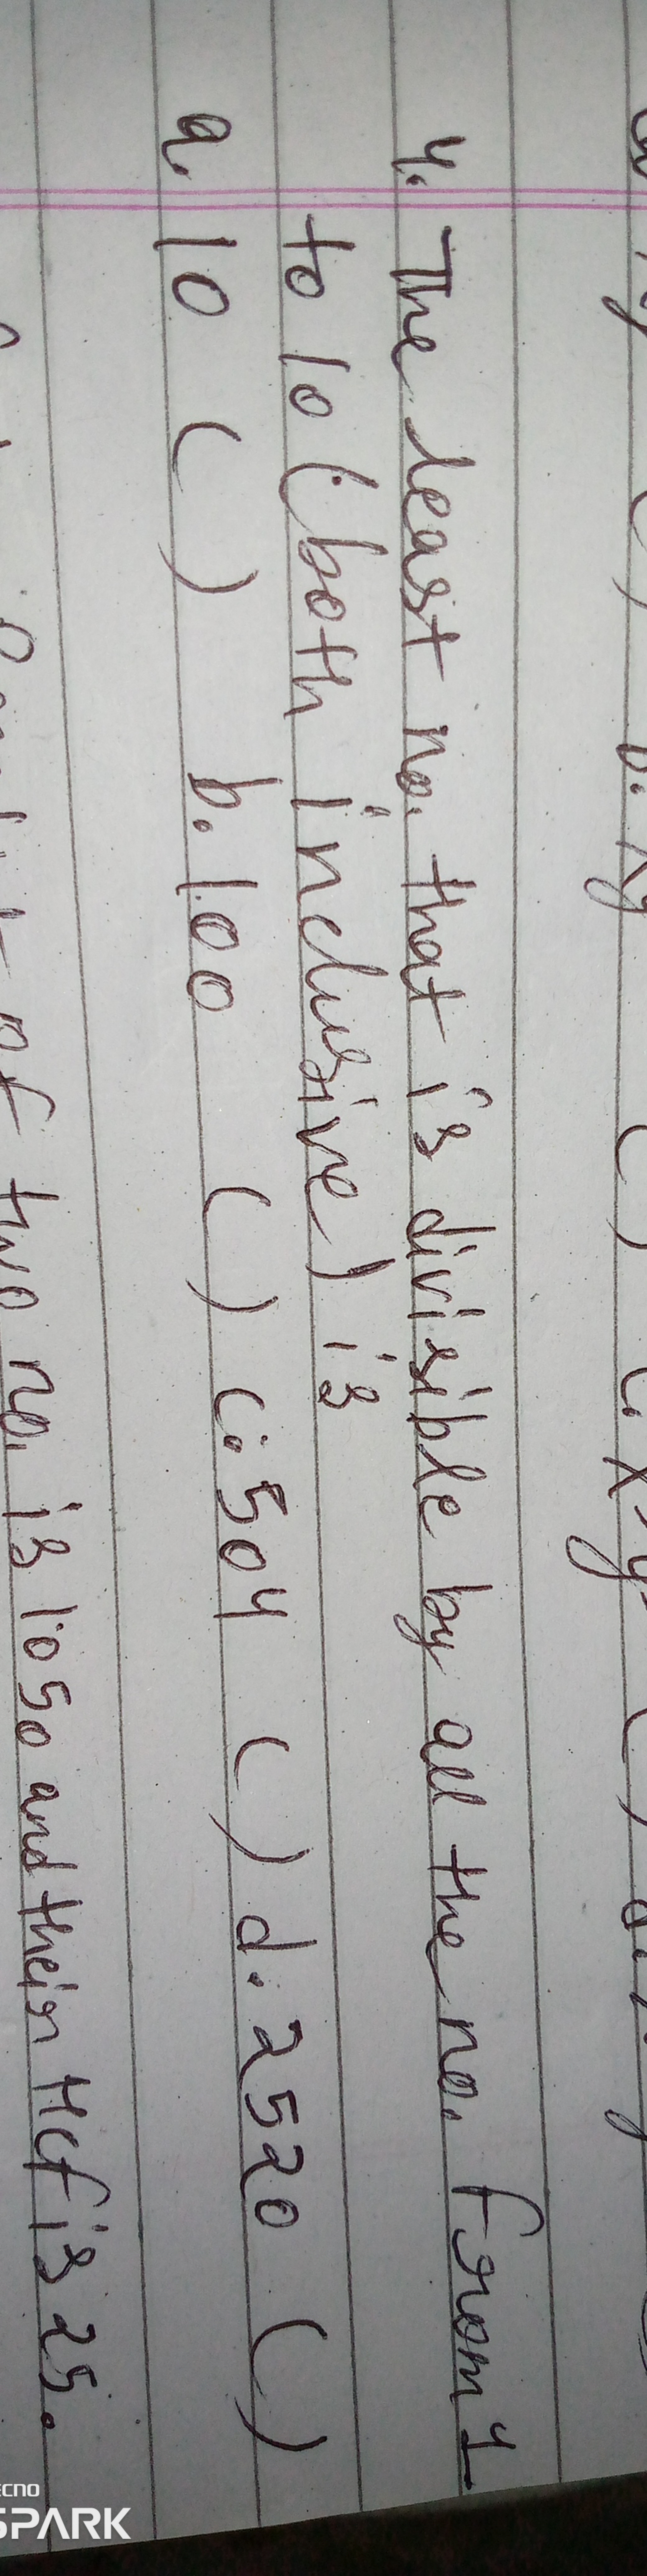 4. The least no. that is divisible by all the no. from 1
to 10 (both inclusive) is
a. 10 ( ) b. 100 ( ) c. 504 ( ) d. 2520 ( )
of two no. is 1050 and their HCf is 25.
SPARK